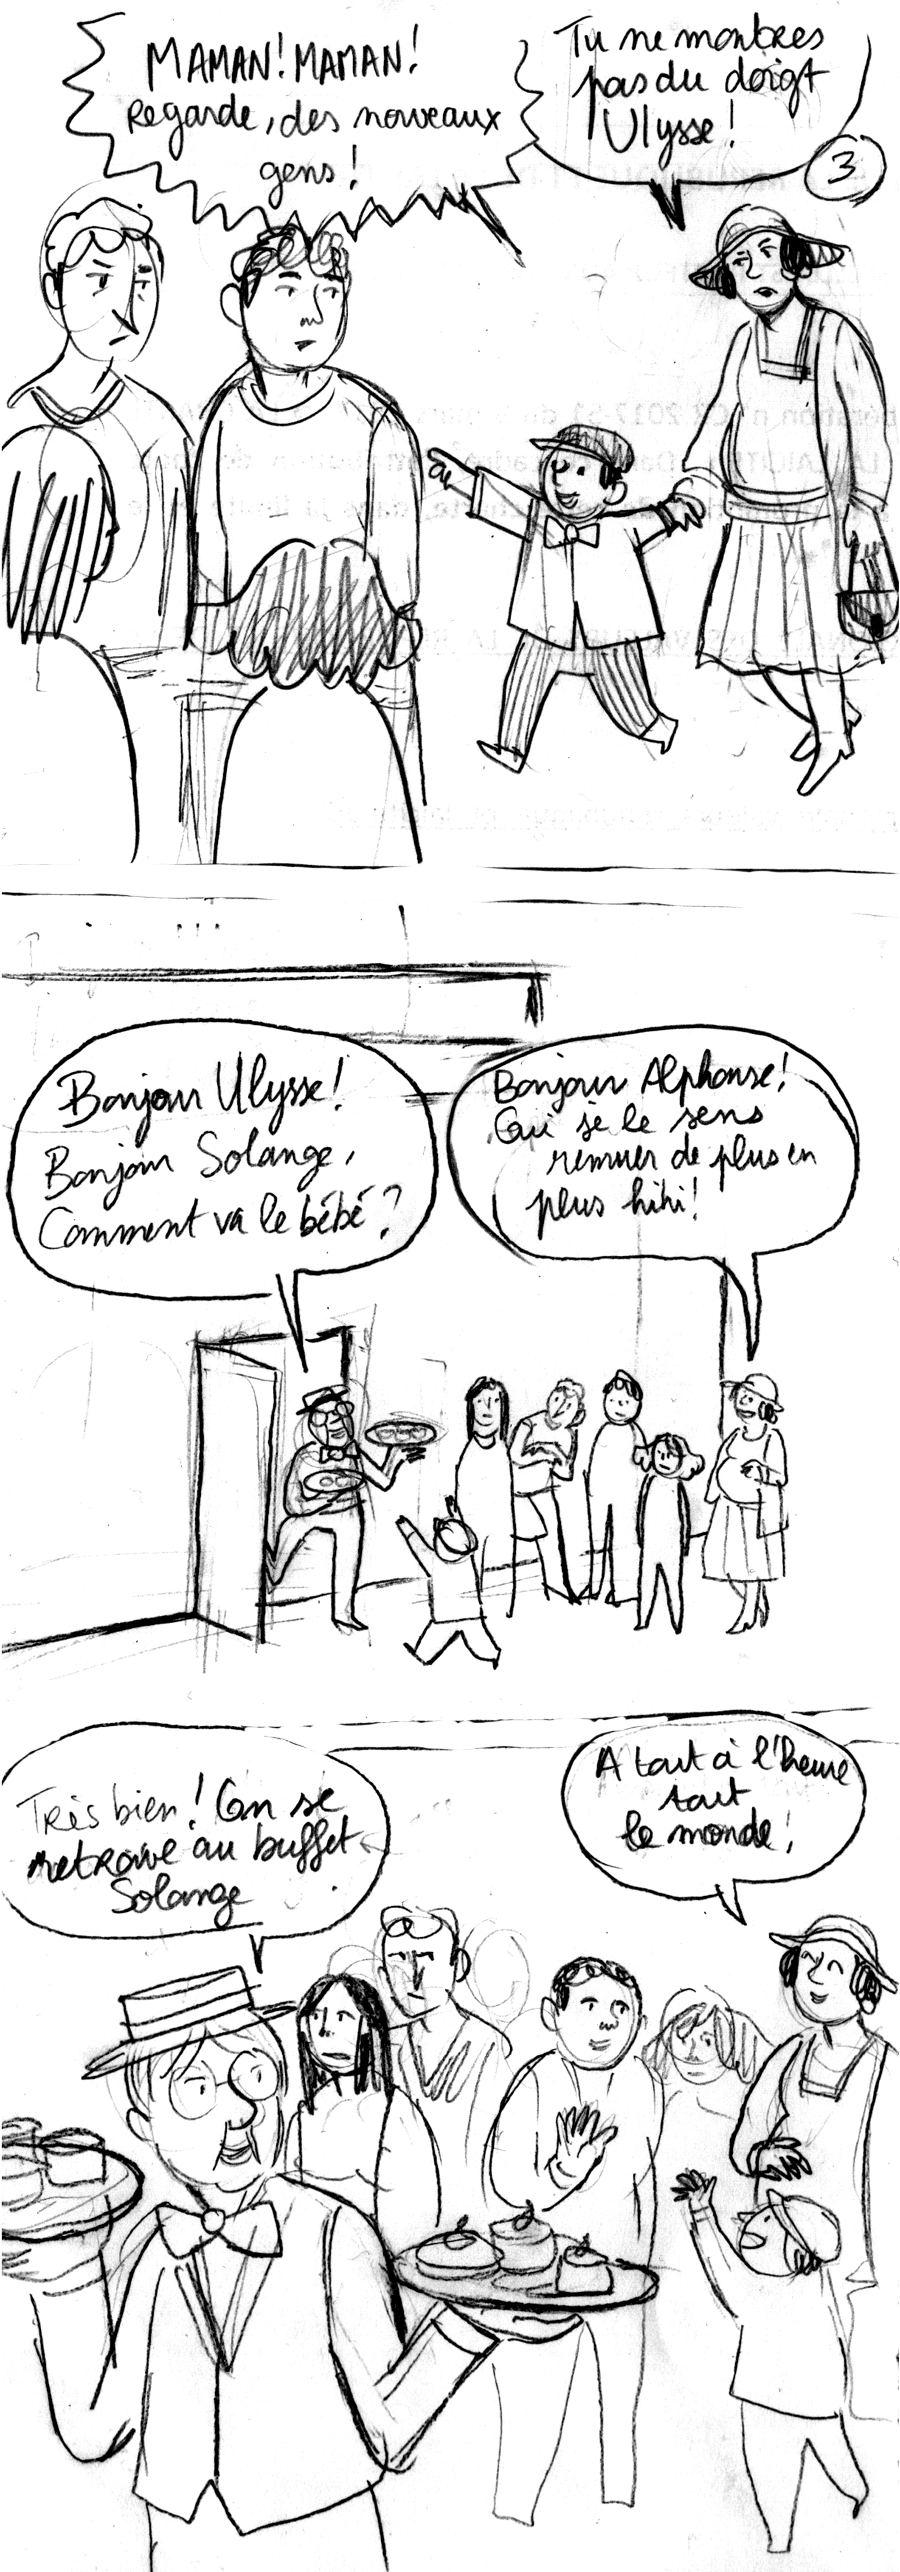 MAMAN! MAMAN!
Regarde, des nouveaux
gens!
Tu ne montres
pas du doigt
Ulysse!
3
Bonjour Ulysse!
Bonjour Solange,
Comment va le bébé?
Bonjour Alphonse!
Oui je le sens
remuer de plus en
plus hihi!
Très bien! On se
retrouve au buffet
Solange
A tout à l'heure
tout
le monde!